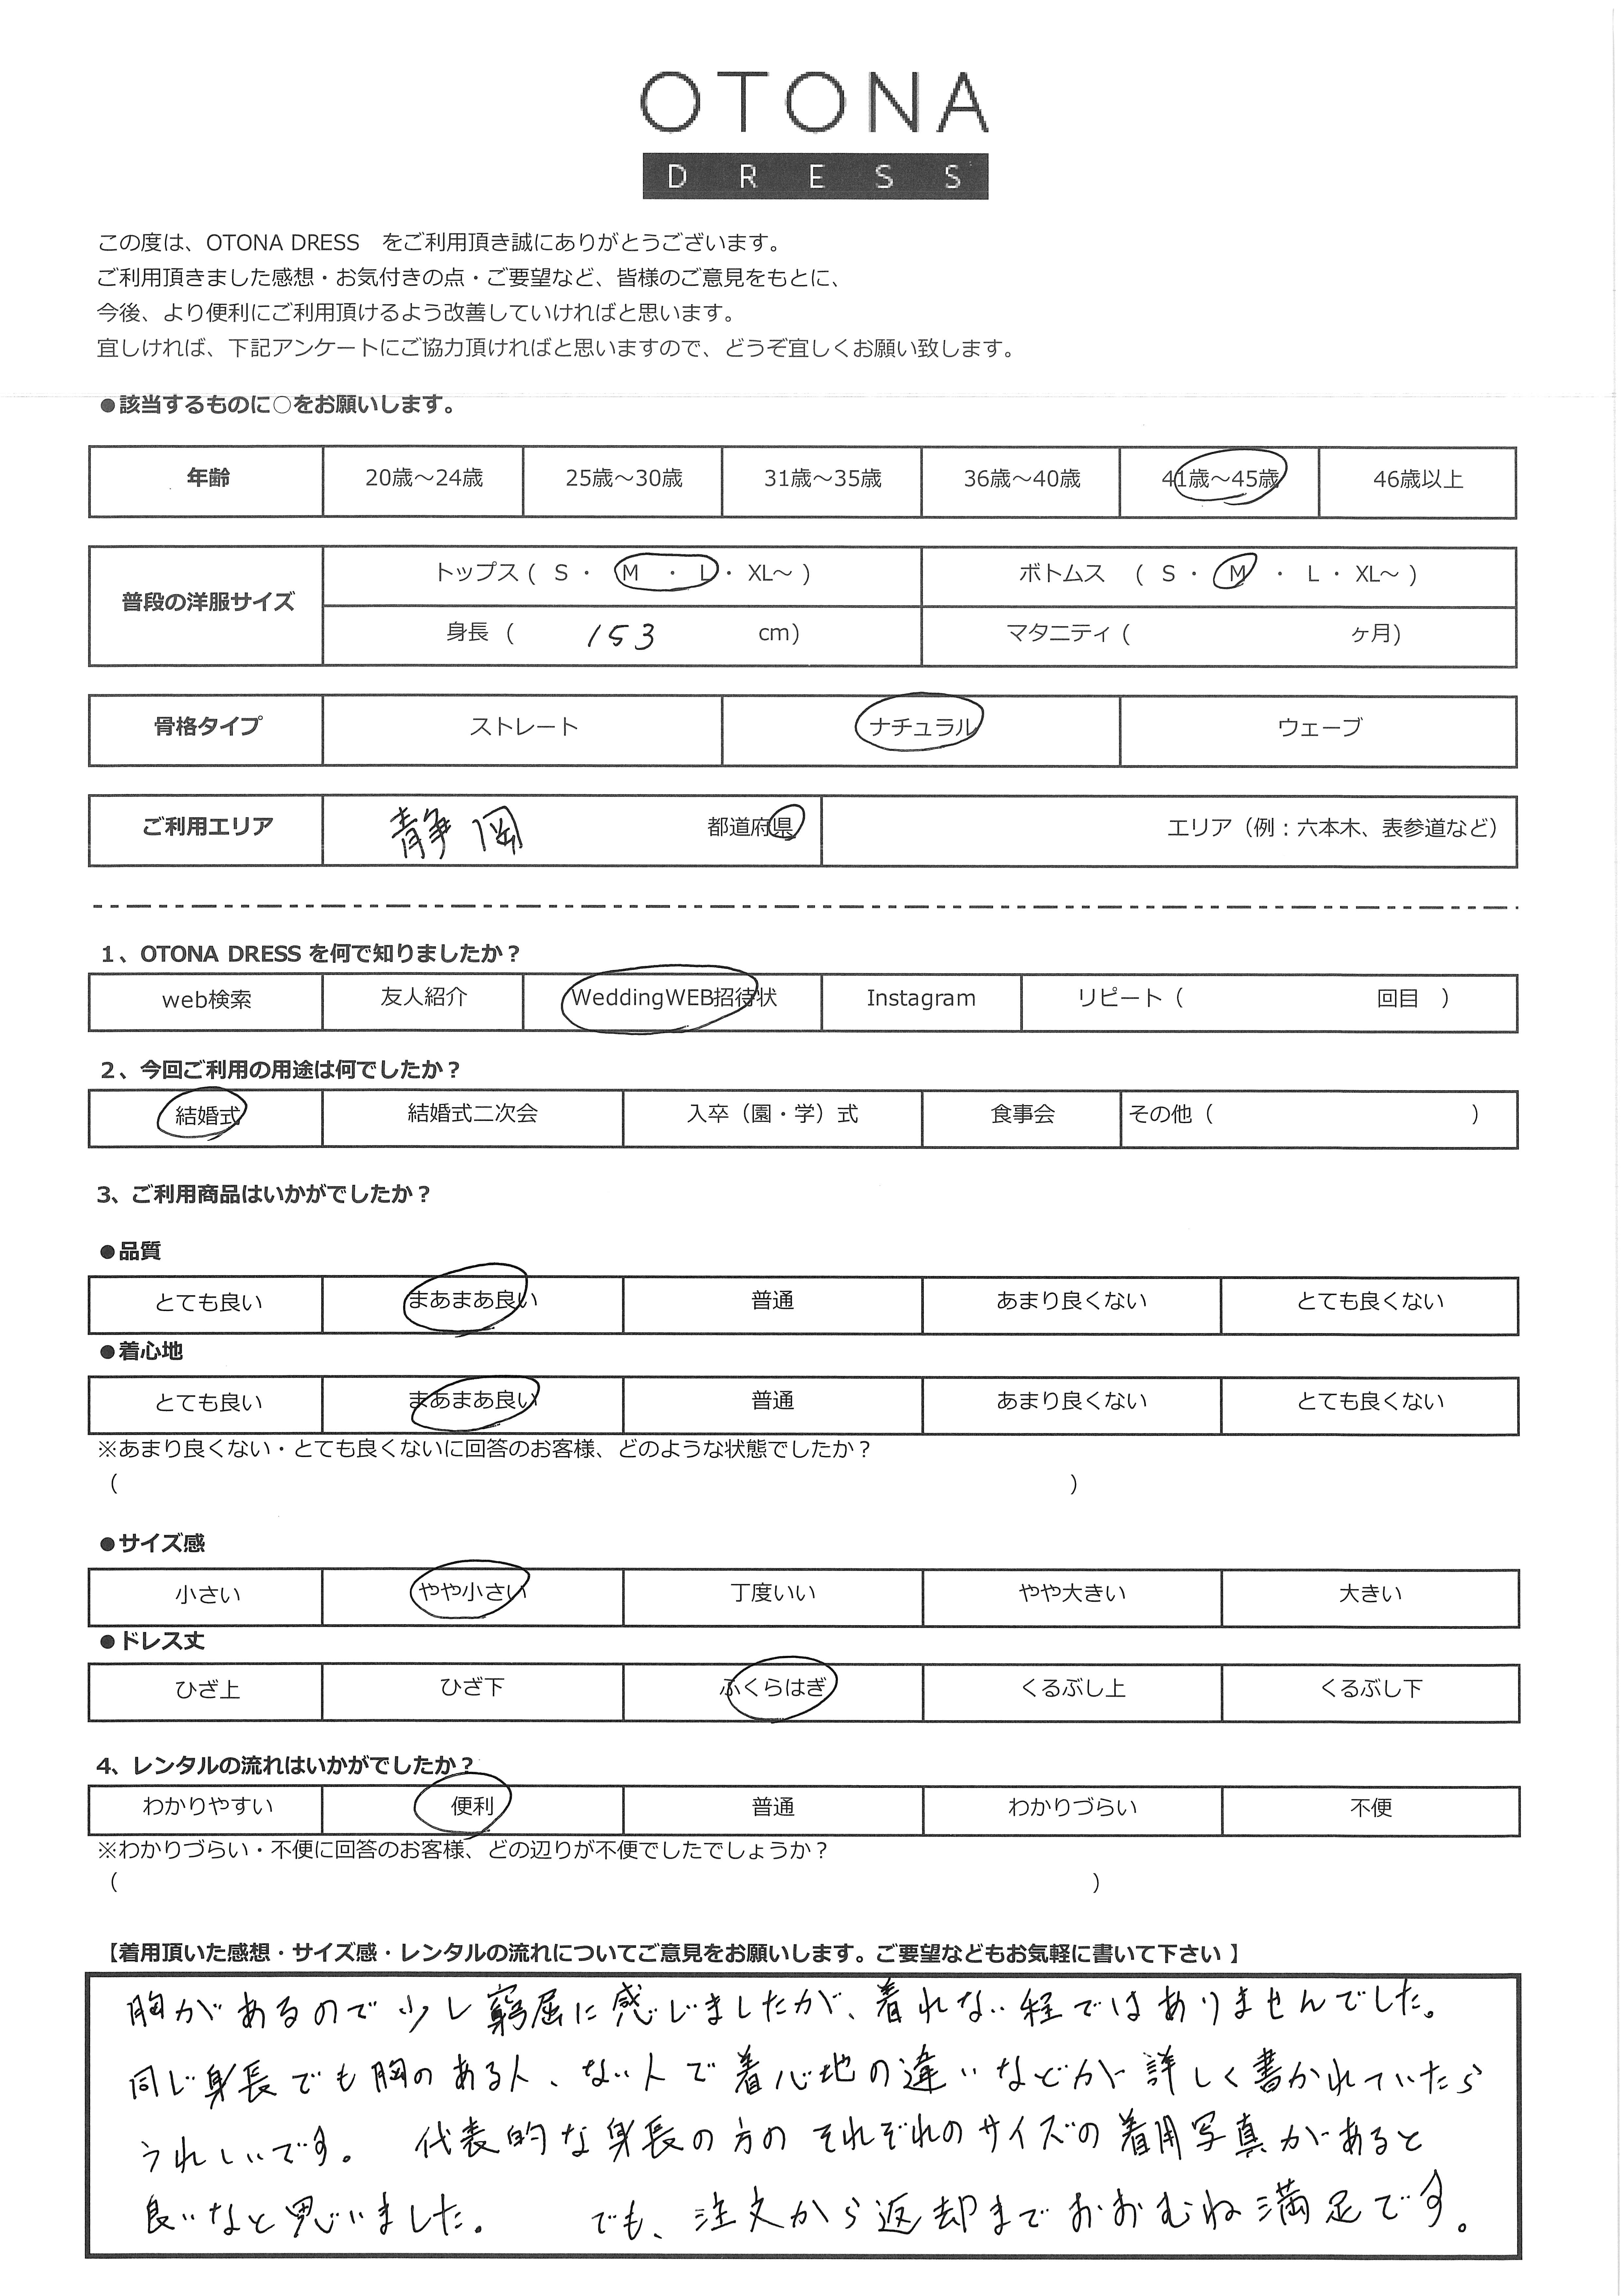 OTONA
DRESS
この度は、OTONA DRESS　をご利用頂き誠にありがとうございます。
ご利用頂きました感想・お気付きの点・ご要望など、皆様のご意見をもとに、
今後、より便利にご利用頂けるよう改善していければと思います。
宜しければ、下記アンケートにご協力頂ければと思いますので、どうぞ宜しくお願い致します。
●該当するものに○をお願いします。
年齢 20歳～24歳 25歳～30歳 31歳～35歳 36歳～40歳 41歳～45歳 46歳以上
普段の洋服サイズ
トップス ( S ・ M ・ L ・ XL～ ) ボトムス ( S ・ M ・ L ・ XL～ )
身長 ( 153 cm) マタニティ ( ヶ月)
骨格タイプ ストレート ナチュラル ウェーブ
ご利用エリア 静岡 都道府県 エリア（例：六本木、表参道など）
1、OTONA DRESS を何で知りましたか？
web検索 友人紹介 WeddingWEB招待状 Instagram リピート（ 回目 ）
2、今回ご利用の用途は何でしたか？
結婚式 結婚式二次会 入卒（園・学）式 食事会 その他（ ）
3、ご利用商品はいかがでしたか？
●品質
とても良い まあまあ良い 普通 あまり良くない とても良くない
●着心地
とても良い まあまあ良い 普通 あまり良くない とても良くない
※あまり良くない・とても良くないに回答のお客様、どのような状態でしたか？
（ ）
●サイズ感
小さい やや小さい 丁度いい やや大きい 大きい
●ドレス丈
ひざ上 ひざ下 ふくらはぎ くるぶし上 くるぶし下
4、レンタルの流れはいかがでしたか？
わかりやすい 便利 普通 わかりづらい 不便
※わかりづらい・不便に回答のお客様、どの辺りが不便でしたでしょうか？
（ ）
【着用頂いた感想・サイズ感・レンタルの流れについてご意見をお願いします。ご要望などもお気軽に書いて下さい 】
胸があるので少し窮屈に感じましたが、着れない程ではありませんでした。
同じ身長でも胸のある人、ない人で着心地の違いなどが詳しく書かれていたら
うれしいです。　代表的な身長の方のそれぞれのサイズの着用写真があると
良いなと思いました。　でも、注文から返却までおおむね満足です。